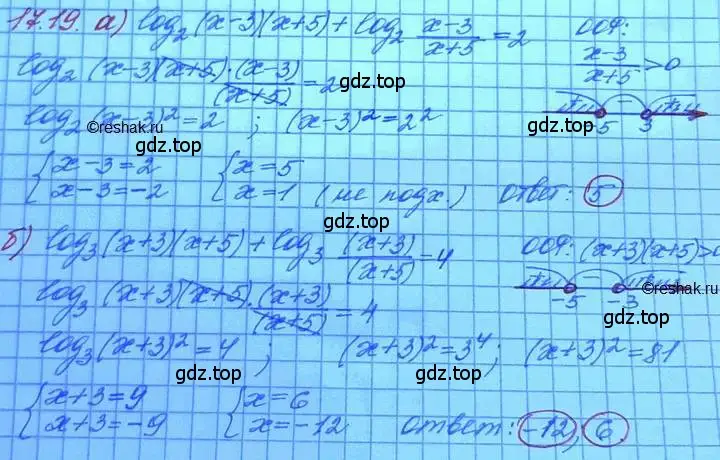 17.19. а) log₂(x-3)(x+5) + log₂ (x-3)/(x+5) = 2 ООФ:
(x-3)/(x+5) > 0
log₂ (x-3)(x+5)·(x-3)/(x+5) = 2
gdz.top
gdz.top
log₂(x-3)² = 2 ; (x-3)² = 2² -5 3
©reshak.ru
gdz.top
gdz.top
{ x-3=2 { x=5
{ x-3=-2 { x=1 (не подх.) ответ: 5
gdz.top
б) log₃(x+3)(x+5) + log₃ (x+3)/(x+5) = 4 ООФ: (x+3)(x+5)>0
gdz.top
gdz.top
log₃(x+3)(x+5)·(x+3)/(x+5) = 4 -5 -3
©reshak.ru
gdz.top
log₃(x+3)² = 4 ; (x+3)² = 3⁴ ; (x+3)² = 81
gdz.top
gdz.top
{ x+3=9 { x=6
{ x+3=-9 { x=-12 ответ: -12; 6
gdz.top